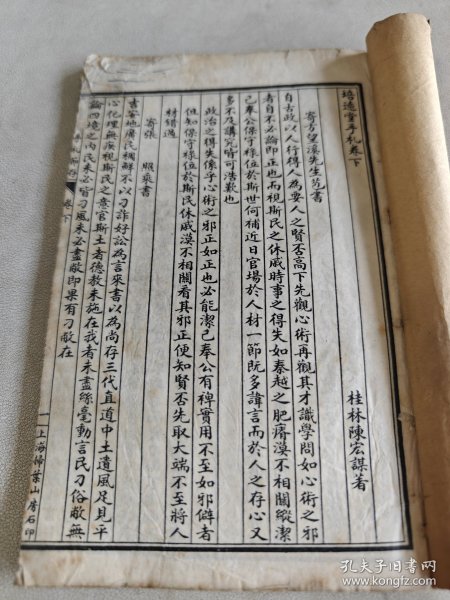 培遠堂手札卷下
桂林陳宏謀著
寄方望溪先生苞書
自古政以人行得人為要人之賢否高下先觀心術再觀其才識學問如心術之邪
者自不必論即正也而視斯民之休戚時事之得失如秦越之肥瘠漠不相關縱潔
己奉公保守祿位於斯世何補近日官場於人材一節既多諱言而於人之存心又
多不及講究皆可浩歎也
政治之得失係乎心術之邪正如正也必能潔己奉公有裨實用不至如邪僻者
但知保守祿位於斯民休戚漠不相關看其邪正便知賢否先取大端不至將人
材錯過
寄張 照泉書
書客地廣民稠鮮不以刁詐好訟為言來書以為尚存三代直道中土遺風足見平
心化理無疾視斯民之意官斯土者德教未施在我者未盡絲毫動言民刁俗敝無
論四境之內民未必皆刁風未必盡敝即果有刁敝在
卷下
一
上海掃葉山房石印
孔夫子旧书网
www.kongfz.com